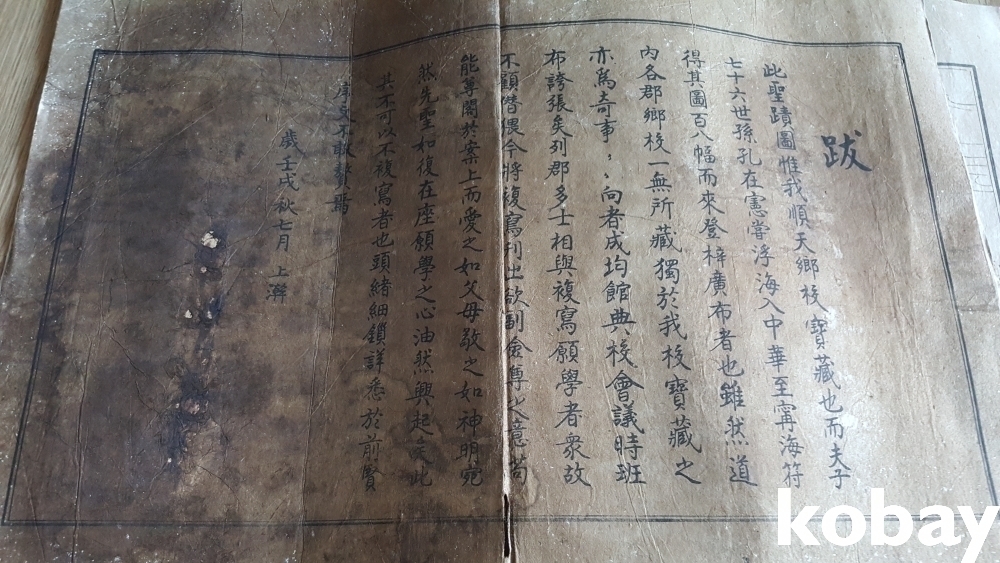 跋
此聖蹟圖惟我順天鄉校寶藏也而夫子
七十六世孫孔在憲嘗浮海入中華至甯海符
得其圖百八幅而來登梓廣布者也雖然道
內各郡鄉校一無所藏獨於我校寶藏之
亦爲奇事〻向者成均館典校會議時班
布誇張矣列郡多士相與複寫願學者衆故
不顧僭猥今將複寫刊出欲副僉尊之意苟
能尊閣於案上而愛之如父母敬之如神明宛
然先聖如復在座願學之心油然興起矣此
其不可以不複寫者也頭緖細鎖詳悉於前賢
序文不敢贅焉
歲壬戌秋七月上澣
kobay